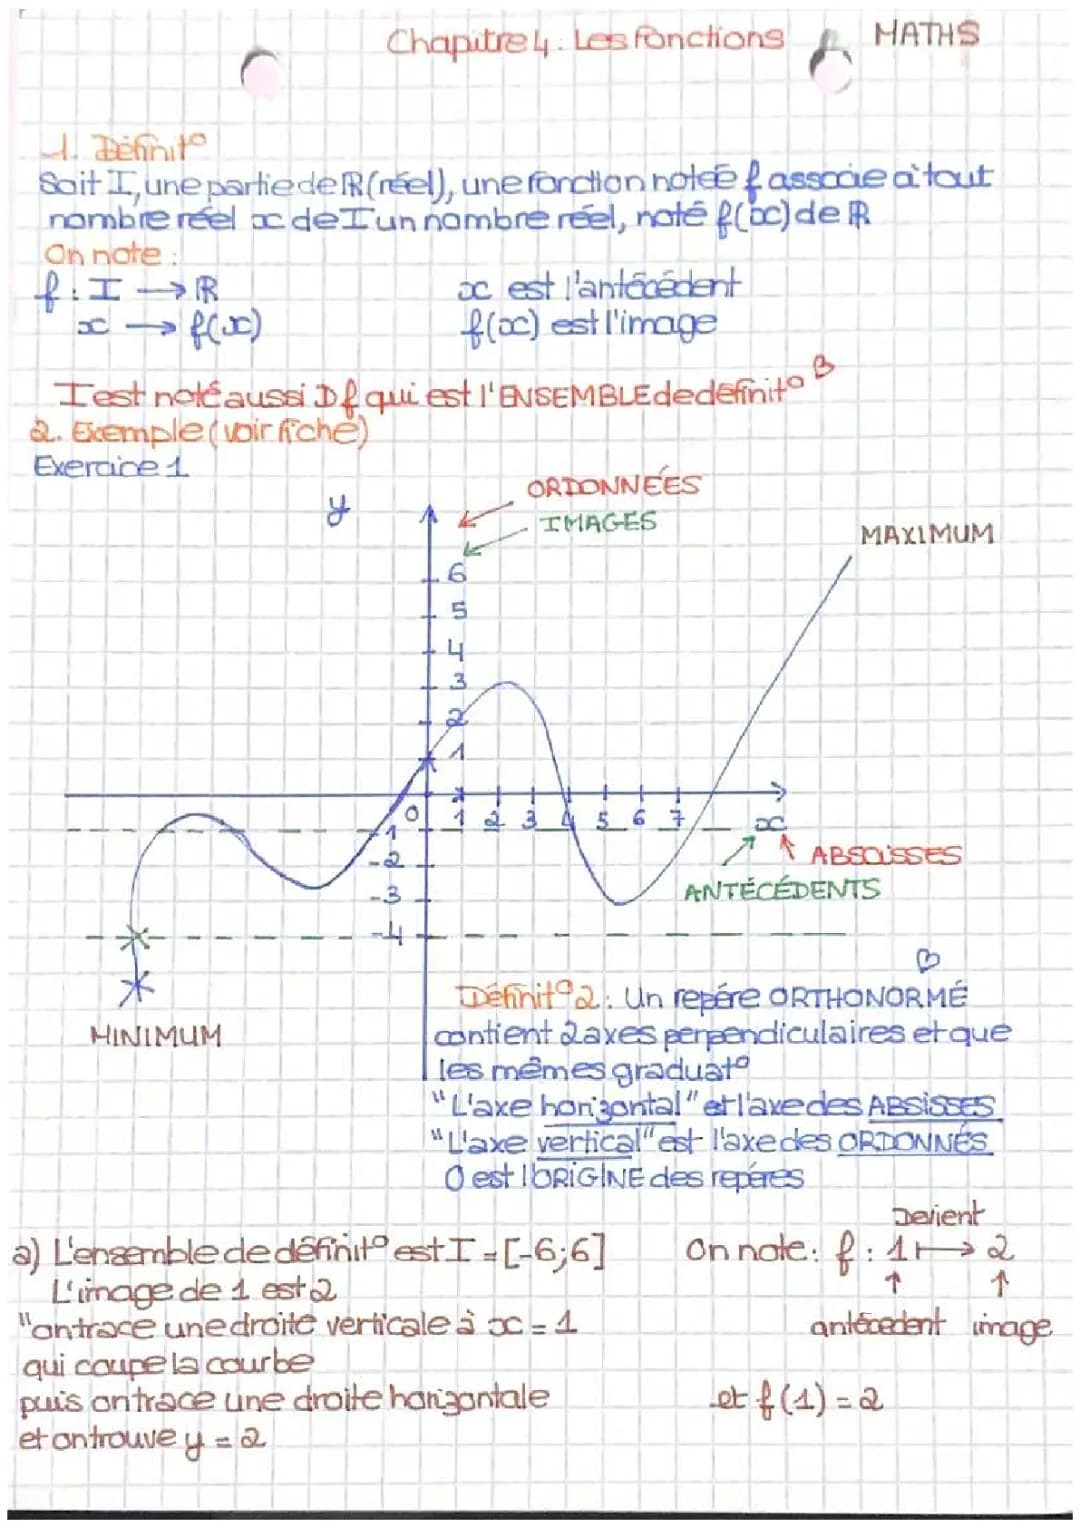 Chapitre 4 : Les fonctions
MATHS
1. Définit°
Soit I, une partie de ℝ (réel), une fonction notée f associe à tout
nombre réel x de I un nombre réel, noté f(x) de ℝ
On note :
f : I → ℝ
x → f(x)
x est l'antécédent
f(x) est l'image
I est noté aussi Df qui est l'ENSEMBLE de définit°
2. Exemple (voir fiche)
Exercice 1
y
ORDONNÉES
IMAGES
MAXIMUM
6
5
4
3
2
1
0 1 2 3 4 5 6 7
x
-1
-2
-3
-4
ABSCISSES
ANTÉCÉDENTS
MINIMUM
Définit° 2 : Un repére ORTHONORMÉ
contient 2 axes perpendiculaires et que
les mêmes graduat°
"L'axe horizontal" et l'axe des ABSISSES
"L'axe vertical" est l'axe des ORDONNÉS
O est l'ORIGINE des repères
a) L'ensemble de définit° est I = [-6;6]
L'image de 1 est 2
"on trace une droite verticale à x = 1
qui coupe la courbe
puis on trace une droite horizontale
et on trouve y = 2
Devient
On note : f : 1 ↦ 2
↑ ↑
antécedent image
et f(1) = 2